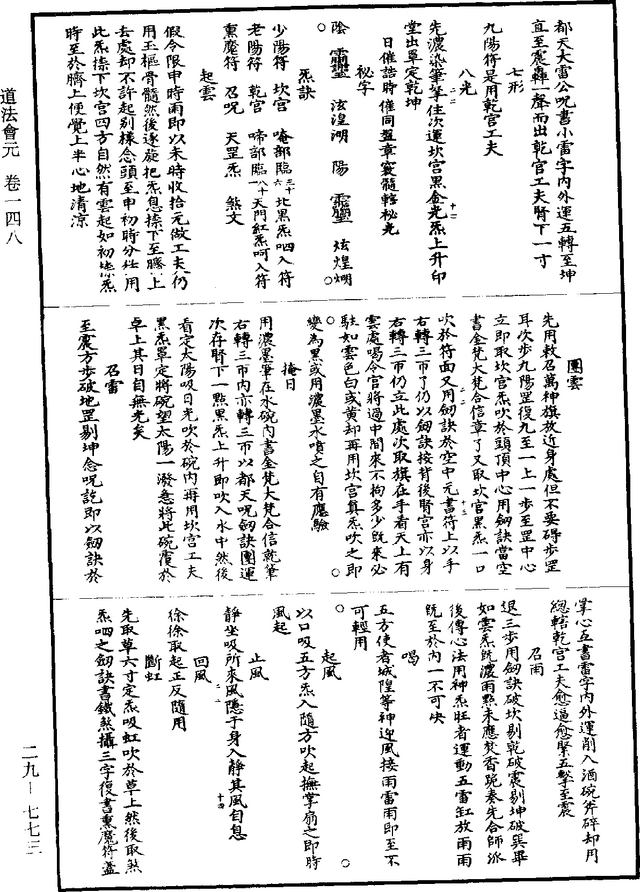 道法會元　卷一四八
二九—七七三
都天大雷公呪書小雷字內外運五轉至坤
直至震轟一聲而出乾宮工夫腎下一寸
七形
九陽符是用乾宮工夫
八光
先濃染筆掌住次運坎宮黑金光炁上升印
堂出單定乾坤
日催語時催同盤章裹髓轄秘光
秘字
陰　泫湟湖　陽　炫煌煳
炁訣
少陽符　坎宮　唵部臨　北黑炁呬入符
老陽符　乾宮　啼部臨　天門紅炁呵入符
熏魔符　召呪　天罡炁　煞文
起雲
假令限申時雨即以未時收拾元做工夫仍
用玉樞骨髓然後逐旋把炁息捺下至臍上
去處却不許起別樣念頭至申初時分任用
此炁捺下坎宮四方自然有雲起如初捺炁
時至於臍上便覺上半心地清涼
團雲
先用敕召萬神旗放近身處但不要碍步罡
耳次步九陽罡復九至一上一步至罡中心
立即取坎宮炁吹於頭頂中心用劒訣當空
書金梵大梵合信章了又取坎宮黑炁一口
吹於符面又用劒訣於空中元書符上以手
右轉三帀了仍以劒訣按背後腎宮亦以身
右轉三帀仍立此處次取旗在手看天上有
雲處喝令官將過中間來不拘多少旣來必
駐如雲色白或黃却再用坎宮真炁吹之即
變為黑或用濃墨水噴之自有應驗
掩日
用濃墨筆在水碗內書金梵大梵合信就筆
右轉三帀內亦轉三帀以都天呪劒訣團運
次存腎下一點黑炁上升即吹入水中然後
看定太陽吸日光吹於碗內再用坎宮工夫
黑炁罩定將碗望太陽一潑急將此碗覆於
卓上其日自無光矣
召雷
至震方步破地罡剔坤念呪訖即以劒訣於
掌心五書雷字內外運削入酒碗斧碎却用
總轄乾宮工夫愈逼愈緊五擊至震
召雨
退三步用劒訣破坎剔乾破震剔坤破巽畢
如雲炁旣濃雨點未應焚香跪奏先合師派
後傳心法用神炁壯者運動五雷缸放雨雨
旣至於內一不可失
喝
五方使者城隍等神迎風接雨雷雨即至不
可輕用
起風
以口吸五方炁入隨方吹起撫掌扇之即時
風起
止風
靜坐吸所來風隱于身入靜其風自息
回風
徐徐取起正反隨用
斷虹
先取草六寸定炁吸虹吹於草上然後取煞
炁呬之劒訣書鐵煞攝三字復書熏魔符蓋